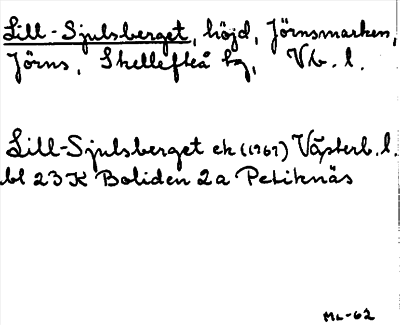 Lill-Sjulsberget, höjd, Jörnsmarken,
Jörns, Skellefteå kg, Vb. l.
Lill-Sjulsberget ek (1967) Västerb. l.
bl 23 K Boliden 2a Petiknäs
ML-62